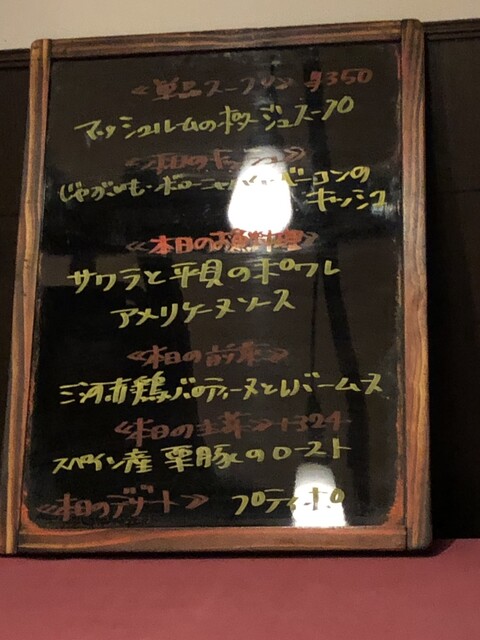 ≪単品スープ≫ ¥350
マッシュルームのポタージュスープ
≪本日のキッシュ≫
じゃがいも・ボローニャ ベーコンの
キッシュ
≪本日のお魚料理≫
サワラと平貝のポワレ
アメリケーヌソース
≪本日の前菜≫
三河赤鶏バロティーヌとレバームース
≪本日の主菜≫ +324
スペイン産 栗豚のロースト
≪本日のデザート≫ プティポ